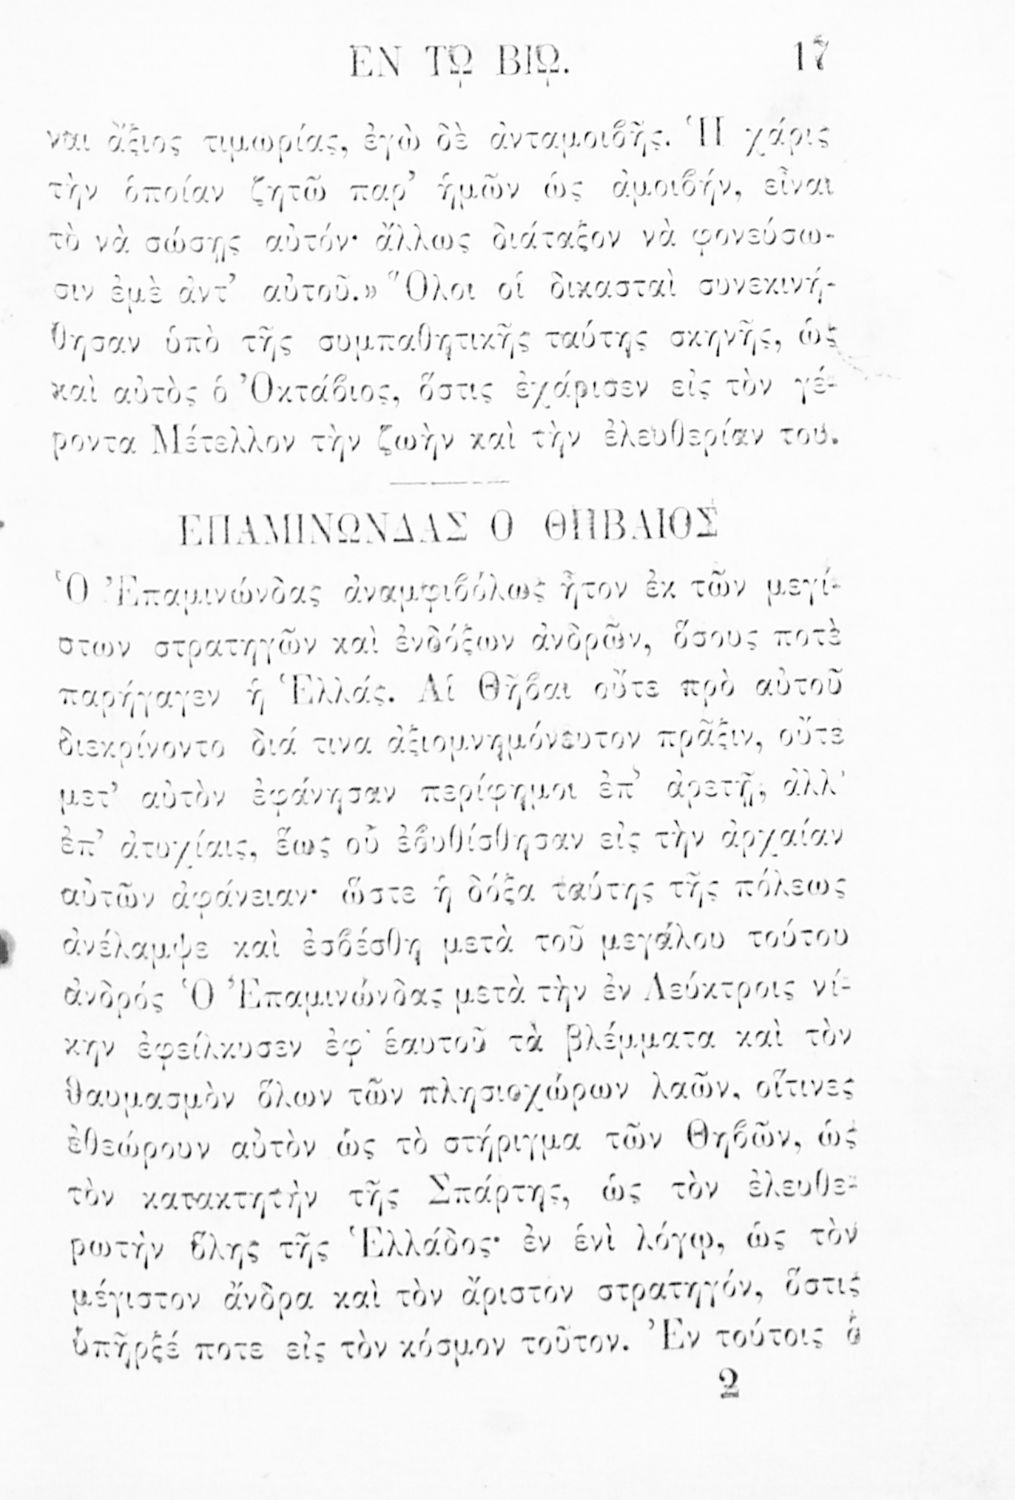 ΕΝ ΤΩ ΒΙΩ. 17
ναι ἄξιος τιμωρίας, ἐγὼ δὲ ἀνταμοιβῆς. Ἡ χάρις
τὴν ὁποίαν ζητῶ παρ’ ἡμῶν ὡς ἀμοιβήν, εἶναι
τὸ νὰ σώσῃς αὐτόν· ἄλλως διάταξον νὰ φονεύσω-
σιν ἐμὲ ἀντ’ αὐτοῦ.» Ὅλοι οἱ δικασταὶ συνεκινή-
θησαν ὑπὸ τῆς συμπαθητικῆς ταύτης σκηνῆς, ὡς
καὶ αὐτὸς ὁ Ὀκτάβιος, ὅστις ἐχάρισεν εἰς τὸν γέ-
ροντα Μέτελλον τὴν ζωὴν καὶ τὴν ἐλευθερίαν του.
ΕΠΑΜΙΝΩΝΔΑΣ Ο ΘΗΒΑΙΟΣ
Ὁ Ἐπαμινώνδας ἀναμφιβόλως ἦτον ἐκ τῶν μεγί-
στων στρατηγῶν καὶ ἐνδόξων ἀνδρῶν, ὅσους ποτὲ
παρήγαγεν ἡ Ἑλλάς. Αἱ Θῆβαι οὔτε πρὸ αὐτοῦ
διεκρίνοντο διά τινα ἀξιομνημόνευτον πρᾶξιν, οὔτε
μετ’ αὐτὸν ἐφάνησαν περίφημοι ἐπ’ ἀρετῇ, ἀλλ’
ἐπ’ ἀτυχίαις, ἕως οὗ ἐβυθίσθησαν εἰς τὴν ἀρχαίαν
αὐτῶν ἀφάνειαν· ὥστε ἡ δόξα ταύτης τῆς πόλεως
ἀνέλαμψε καὶ ἐσβέσθη μετὰ τοῦ μεγάλου τούτου
ἀνδρός Ὁ Ἐπαμινώνδας μετὰ τὴν ἐν Λεύκτροις νί-
κην ἐφείλκυσεν ἐφ’ ἑαυτοῦ τὰ βλέμματα καὶ τὸν
θαυμασμὸν ὅλων τῶν πλησιοχώρων λαῶν, οἵτινες
ἐθεώρουν αὐτὸν ὡς τὸ στήριγμα τῶν Θηβῶν, ὡς
τὸν κατακτητὴν τῆς Σπάρτης, ὡς τὸν ἐλευθε-
ρωτὴν ὅλης τῆς Ἑλλάδος· ἐν ἑνὶ λόγῳ, ὡς τὸν
μέγιστον ἄνδρα καὶ τὸν ἄριστον στρατηγόν, ὅστις
ὑπῆρξέ ποτε εἰς τὸν κόσμον τοῦτον. Ἐν τούτοις ὁ
2